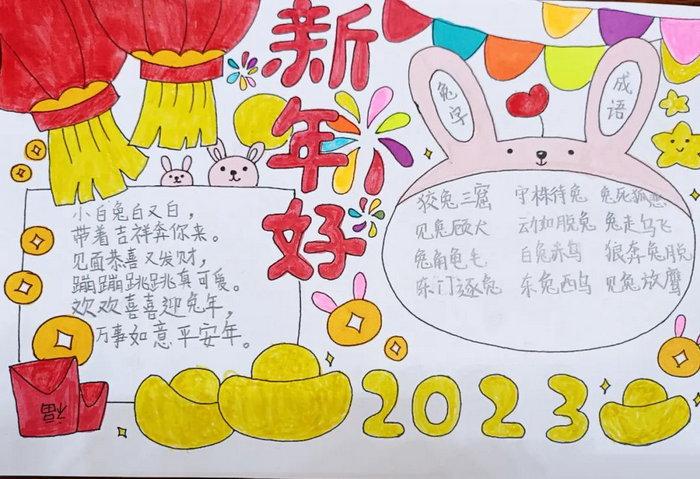 新年好
小白兔白又白，
带着吉祥奔你来。
见面恭喜又发财，
蹦蹦蹦跳跳真可爱。
欢欢喜喜迎兔年，
万事如意平安年。
福
兔字
成语
狡兔三窟 守株待兔 兔死狐悲
见兔顾犬 动如脱兔 兔走乌飞
兔角龟毛 白兔赤乌 狼奔兔脱
东门逐兔 东兔西乌 见兔放鹰
2023